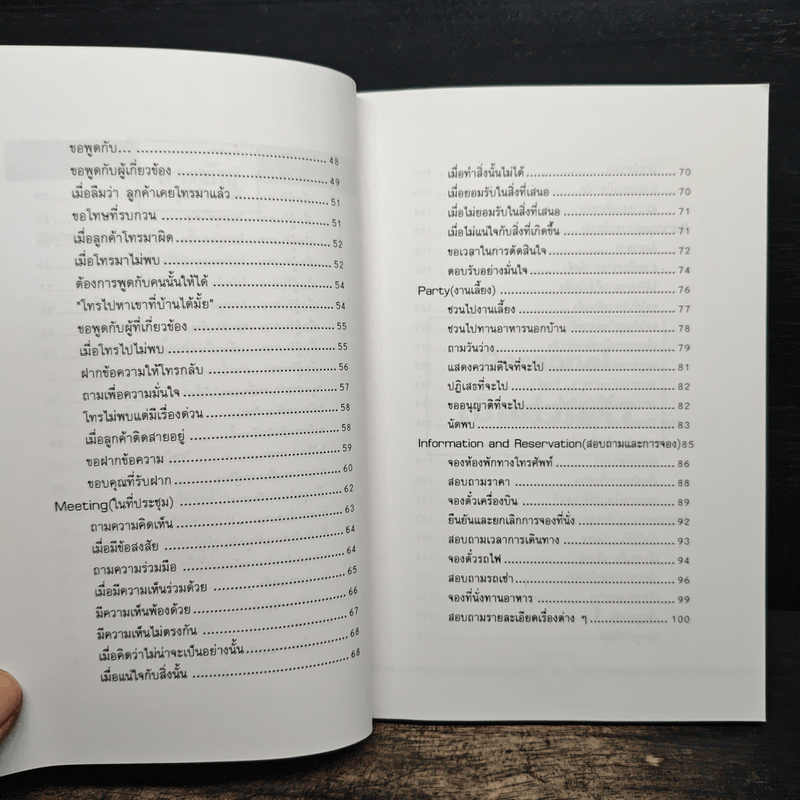 ขอพูดกับ... 48
ขอพูดกับผู้เกี่ยวข้อง 49
เมื่อลืมว่า ลูกค้าเคยโทรมาแล้ว 51
ขอโทษที่รบกวน 51
เมื่อลูกค้าโทรมาผิด 52
เมื่อโทรมาไม่พบ 52
ต้องการพูดกับคนนั้นให้ได้ 54
"โทรไปหาเขาที่บ้านได้มั้ย" 54
ขอพูดกับผู้ที่เกี่ยวข้อง 55
เมื่อโทรไปไม่พบ 55
ฝากข้อความให้โทรกลับ 56
ถามเพื่อความมั่นใจ 57
โทรไม่พบแต่มีเรื่องด่วน 58
เมื่อลูกค้าติดสายอยู่ 58
ขอฝากข้อความ 59
ขอบคุณที่รับฝาก 60
Meeting(ในที่ประชุม) 62
ถามความคิดเห็น 63
เมื่อมีข้อสงสัย 64
ถามความร่วมมือ 64
เมื่อมีความเห็นร่วมด้วย 65
มีความเห็นพ้องด้วย 66
มีความเห็นไม่ตรงกัน 67
เมื่อคิดว่าไม่น่าจะเป็นอย่างนั้น 68
เมื่อแน่ใจกับสิ่งนั้น 68
เมื่อทำสิ่งนั้นไม่ได้ 70
เมื่อยอมรับในสิ่งที่เสนอ 70
เมื่อไม่ยอมรับในสิ่งที่เสนอ 71
เมื่อไม่แน่ใจกับสิ่งที่เกิดขึ้น 71
ขอเวลาในการตัดสินใจ 72
ตอบรับอย่างมั่นใจ 74
Party(งานเลี้ยง) 76
ชวนไปงานเลี้ยง 77
ชวนไปทานอาหารนอกบ้าน 78
ถามวันว่าง 79
แสดงความดีใจที่จะไป 81
ปฏิเสธที่จะไป 82
ขออนุญาติที่จะไป 82
นัดพบ 83
Information and Reservation(สอบถามและการจอง)85
จองห้องพักทางโทรศัพท์ 86
สอบถามราคา 88
จองตั๋วเครื่องบิน 89
ยืนยันและยกเลิกการจองที่นั่ง 92
สอบถามเวลาการเดินทาง 93
จองตั๋วรถไฟ 94
สอบถามรถเช่า 96
จองที่นั่งทานอาหาร 99
สอบถามรายละเอียดเรื่องต่าง ๆ 100